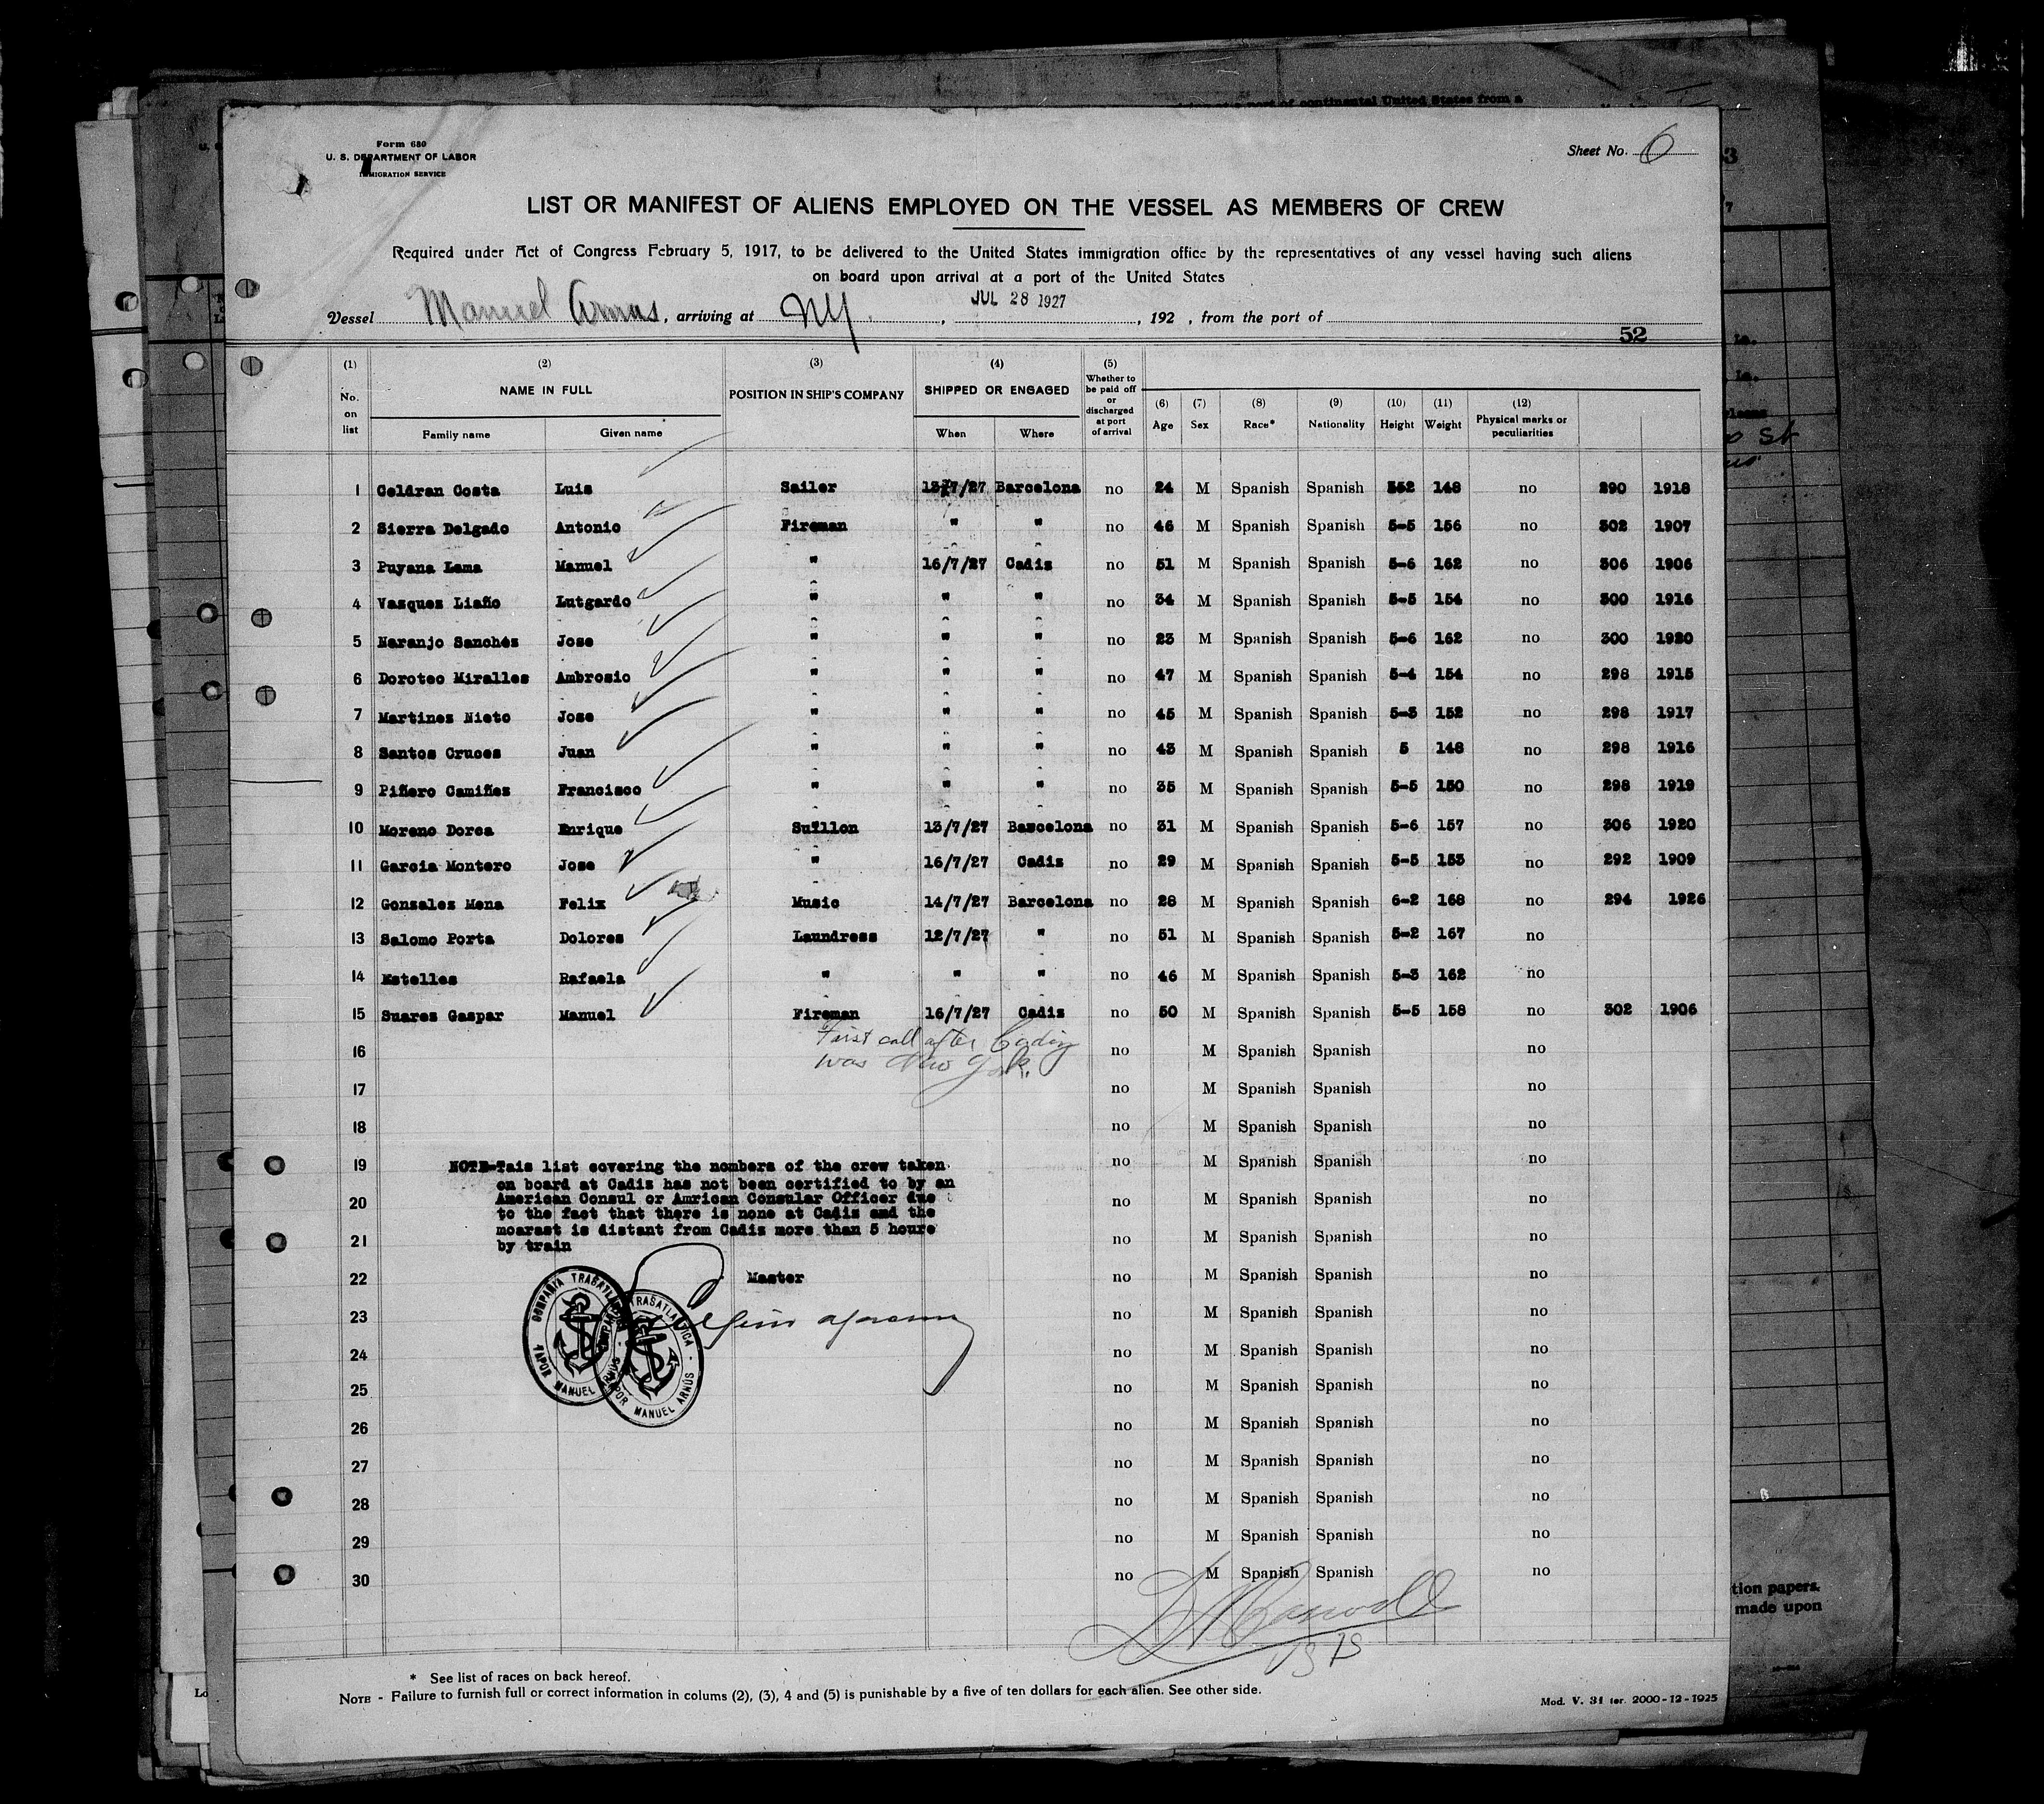 Form 680
U. S. DEPARTMENT OF LABOR
IMMIGRATION SERVICE
Sheet No. 6
LIST OR MANIFEST OF ALIENS EMPLOYED ON THE VESSEL AS MEMBERS OF CREW
Required under Act of Congress February 5, 1917, to be delivered to the United States immigration office by the representatives of any vessel having such aliens
on board upon arrival at a port of the United States
JUL 28 1927
Vessel Manuel Arnus, arriving at NY. , , 192 , from the port of
52
(1) (2) (3) (4) (5)
No. on list NAME IN FULL POSITION IN SHIP'S COMPANY SHIPPED OR ENGAGED Whether to be paid off or discharged at port of arrival
(6) (7) (8) (9) (10) (11) (12)
Family name Given name When Where Age Sex Race* Nationality Height Weight Physical marks or peculiarities
1 Celdran Costa Luis Sailer 13/7/27 Barcelona no 24 M Spanish Spanish 148 no 290 1918
2 Sierra Delgado Antonio Fireman " " no 46 M Spanish Spanish 5-5 156 no 302 1907
3 Puyana Lama Manuel " 16/7/27 Cadiz no 51 M Spanish Spanish 5-6 162 no 306 1906
4 Vazquez Liaño Lutgardo " " " no 34 M Spanish Spanish 5-5 154 no 300 1916
5 Naranjo Sanchés Jose " " " no 23 M Spanish Spanish 5-6 162 no 300 1920
6 Doroteo Miralles Ambrosio " " " no 47 M Spanish Spanish 5-4 154 no 298 1915
7 Martines Nieto Jose " " " no 45 M Spanish Spanish 5-3 152 no 298 1917
8 Santos Cruces Juan " " " no 43 M Spanish Spanish 5 148 no 298 1916
9 Piñero Camiñes Francisco " " " no 35 M Spanish Spanish 5-5 150 no 298 1919
10 Moreno Dorca Enrique Suillon 13/7/27 Barcelona no 31 M Spanish Spanish 5-6 157 no 306 1920
11 Garcia Montero Jose " 16/7/27 Cadiz no 29 M Spanish Spanish 5-5 153 no 292 1909
12 Gonzales Mena Felix Music 14/7/27 Barcelona no 28 M Spanish Spanish 6-2 168 no 294 1926
13 Salomo Porta Dolores Laundress 12/7/27 " no 51 M Spanish Spanish 5-2 167 no
14 Estelles Rafaela " " " no 46 M Spanish Spanish 5-3 162 no
15 Suares Gaspar Manuel Fireman 16/7/27 Cadiz no 50 M Spanish Spanish 5-5 158 no 302 1906
First call after Cadiz
was New York.
16 no M Spanish Spanish no
17 no M Spanish Spanish no
18 no M Spanish Spanish no
19 no M Spanish Spanish no
NOTE-Tais list covering the nombers of the crew taken
on board at Cadiz has not been certified to by an
American Consul or Amrican Consular Officer due
to the fact that there is none at Cadiz and the
moarast is distant from Cadiz more than 5 houre
by train
20 no M Spanish Spanish no
21 no M Spanish Spanish no
22 Master no M Spanish Spanish no
COMPAÑIA TRASATLANTICA
VAPOR MANUEL ARNUS
COMPAÑIA TRASATLANTICA
VAPOR MANUEL ARNUS
23 no M Spanish Spanish no
24 no M Spanish Spanish no
25 no M Spanish Spanish no
26 no M Spanish Spanish no
27 no M Spanish Spanish no
28 no M Spanish Spanish no
29 no M Spanish Spanish no
30 no M Spanish Spanish no
* See list of races on back hereof.
NOTE - Failure to furnish full or correct information in colums (2), (3), 4 and (5) is punishable by a five of ten dollars for each alien. See other side.
Mod. V. 31 ter. 2000-12-1925
tion papers.
made upon